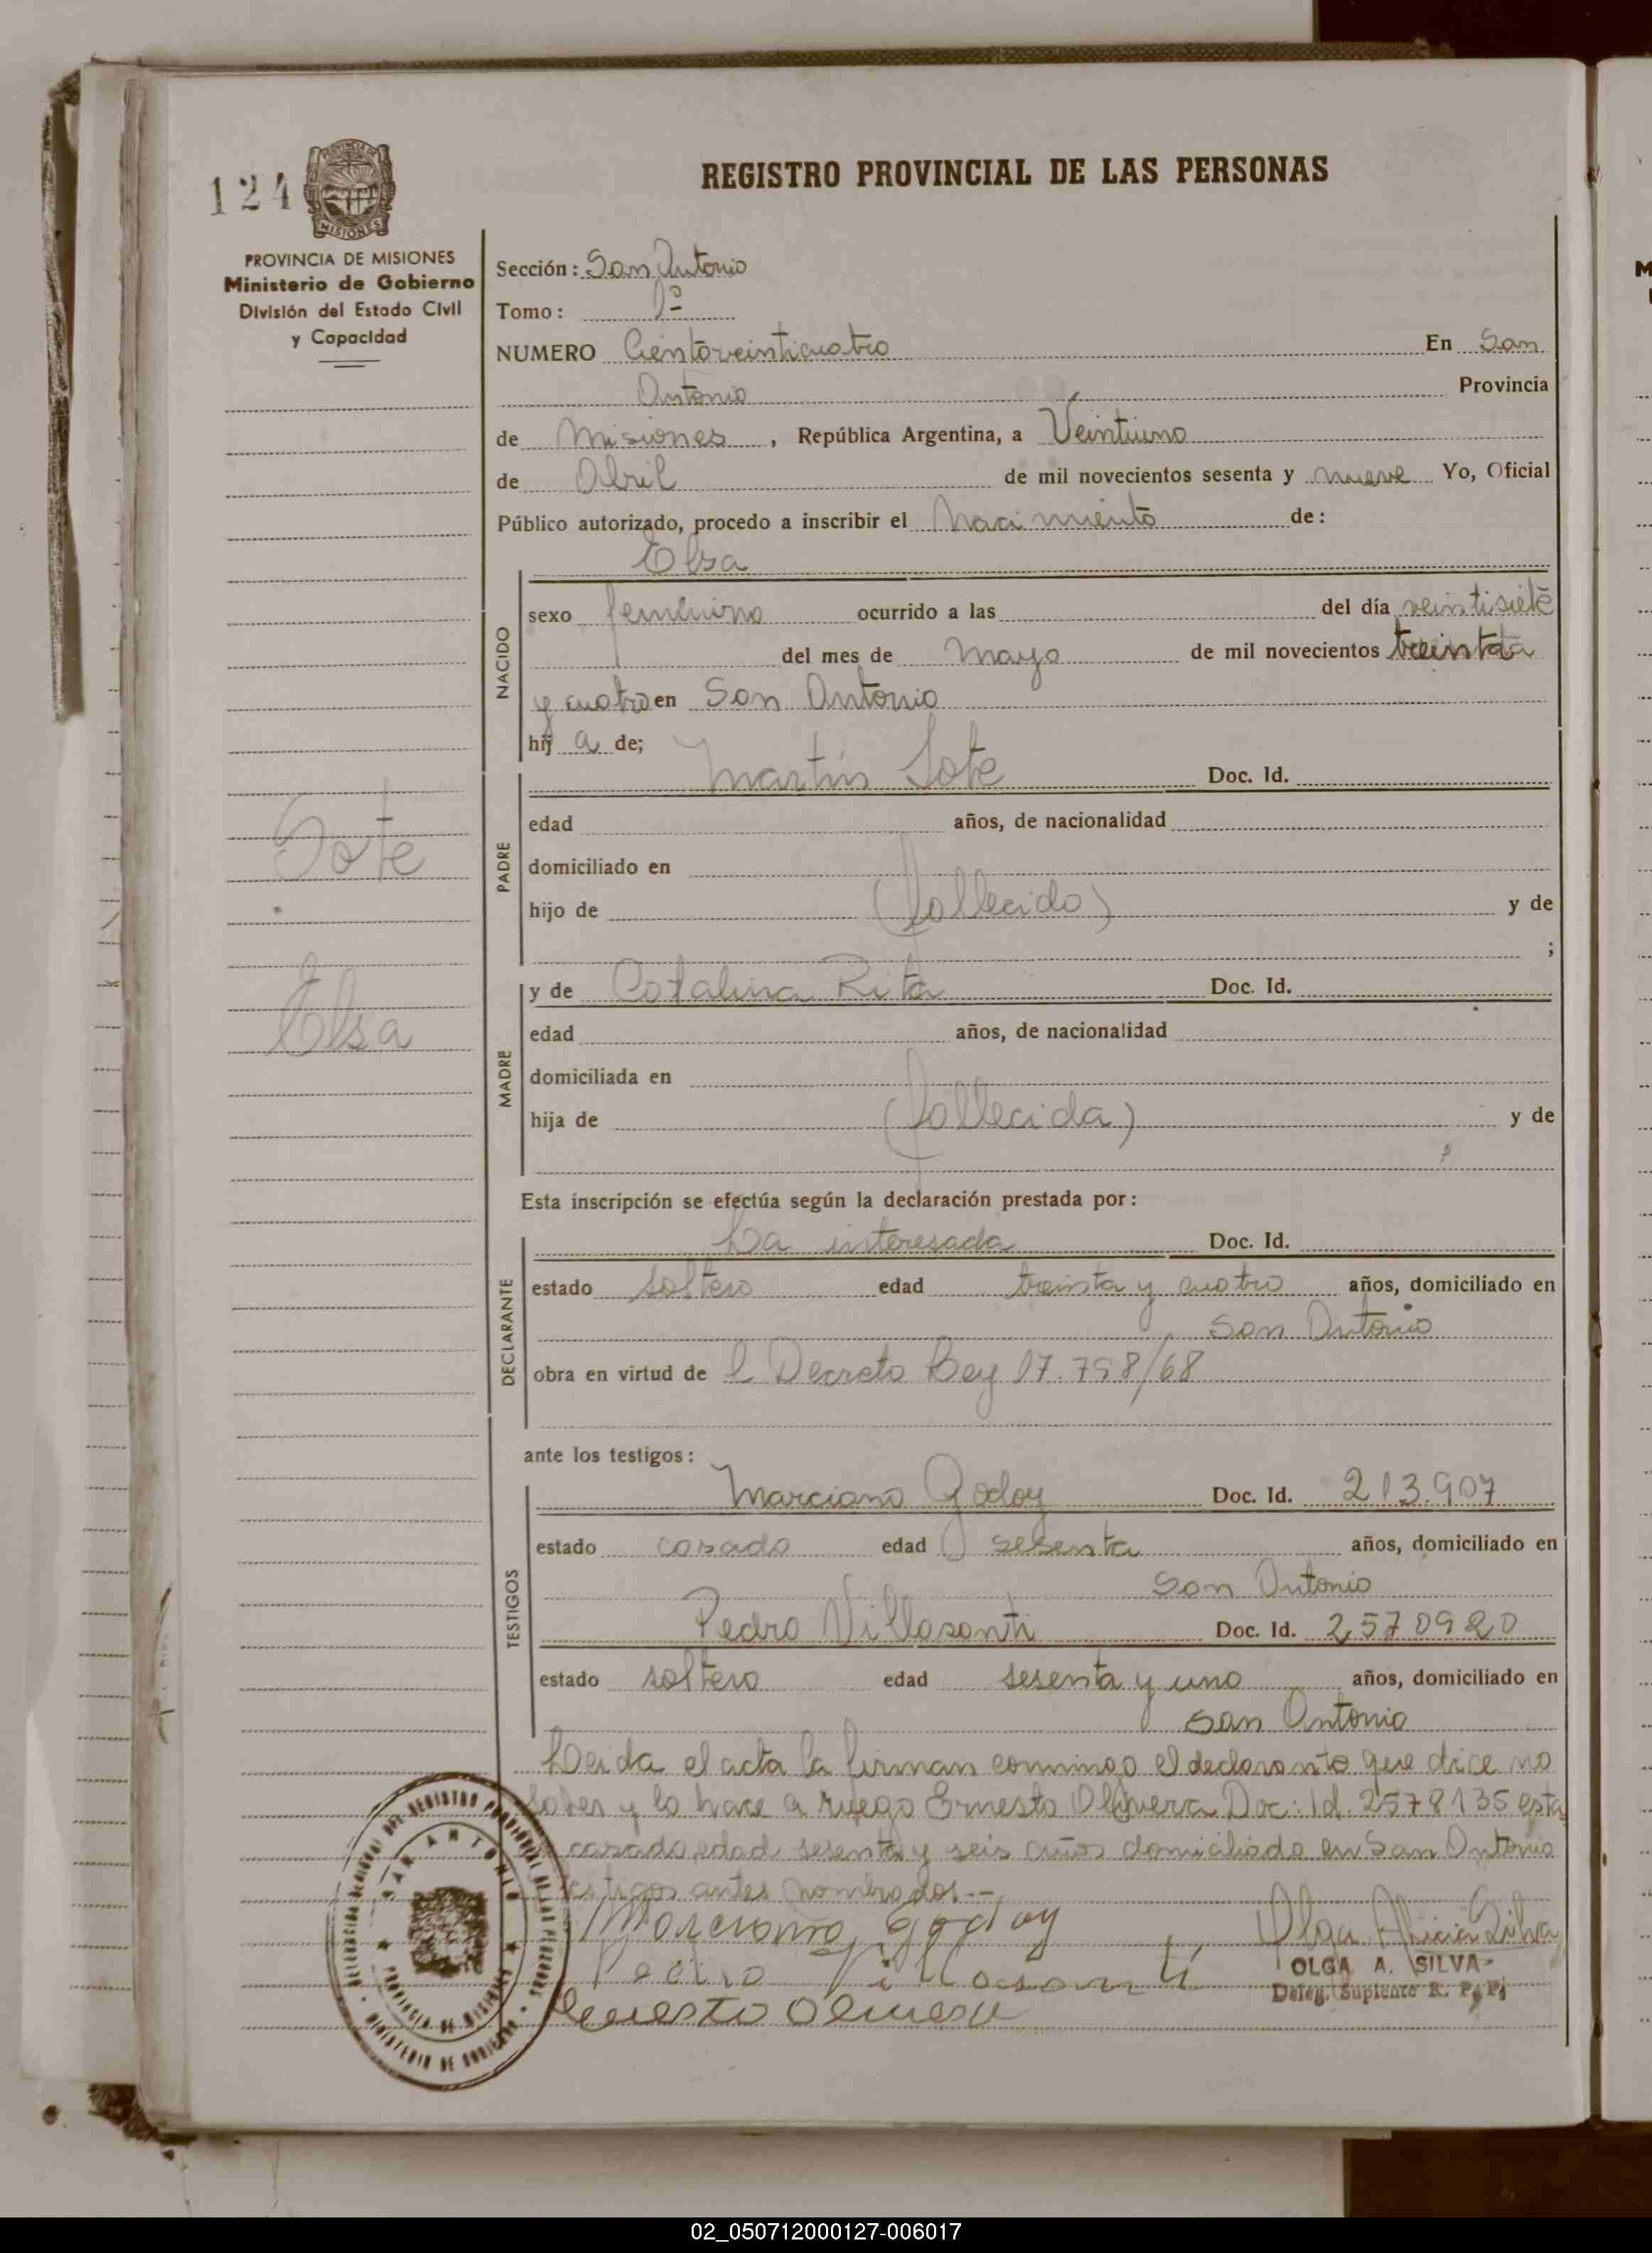 124
PROVINCIA DE MISIONES
Ministerio de Gobierno
División del Estado Civil
y Capacidad
REGISTRO PROVINCIAL DE LAS PERSONAS
Sección: San Antonio
Tomo: 1º
NUMERO Cientoveinticuatro En San
Antonio Provincia
de Misiones, República Argentina, a Veintiuno
de Abril de mil novecientos sesenta y nueve Yo, Oficial
Público autorizado, procedo a inscribir el Nacimiento de:
Elsa
NACIDO
sexo femenino ocurrido a las del día veintisiete
del mes de mayo de mil novecientos treinta
y cuatro en San Antonio
hij a de;
Martín Sote Doc. Id.
PADRE
edad años, de nacionalidad
domiciliado en
hijo de (fallecido) y de
;
Sote
Elsa
y de Catalina Rita Doc. Id.
MADRE
edad años, de nacionalidad
domiciliada en
hija de (fallecida) y de
Esta inscripción se efectúa según la declaración prestada por:
La interesada Doc. Id.
DECLARANTE
estado soltero edad treinta y cuatro años, domiciliado en
San Antonio
obra en virtud de l Decreto Ley 17.798/68
ante los testigos:
Marciano Godoy Doc. Id. 213.907
TESTIGOS
estado casado edad sesenta años, domiciliado en
San Antonio
Pedro Villasanti Doc. Id. 2570920
estado soltero edad sesenta y uno años, domiciliado en
San Antonio
Leida el acta la firman conmigo el declarante que dice no
saber y lo hace a ruego Ernesto Olivera Doc: Id. 2578135 esta
casado, edad sesenta y seis años domiciliado en San Antonio
testigos antes nombrados.--
Marciano godoy
Olga Alicia Silva
Pedro Villasanti
OLGA A. SILVA
Deleg. Suplente R. P. P.
Ernesto Olivera
SAN ANTONIO
PROVINCIA DE MISIONES
MINISTERIO DE GOBIERNO
02_050712000127-006017